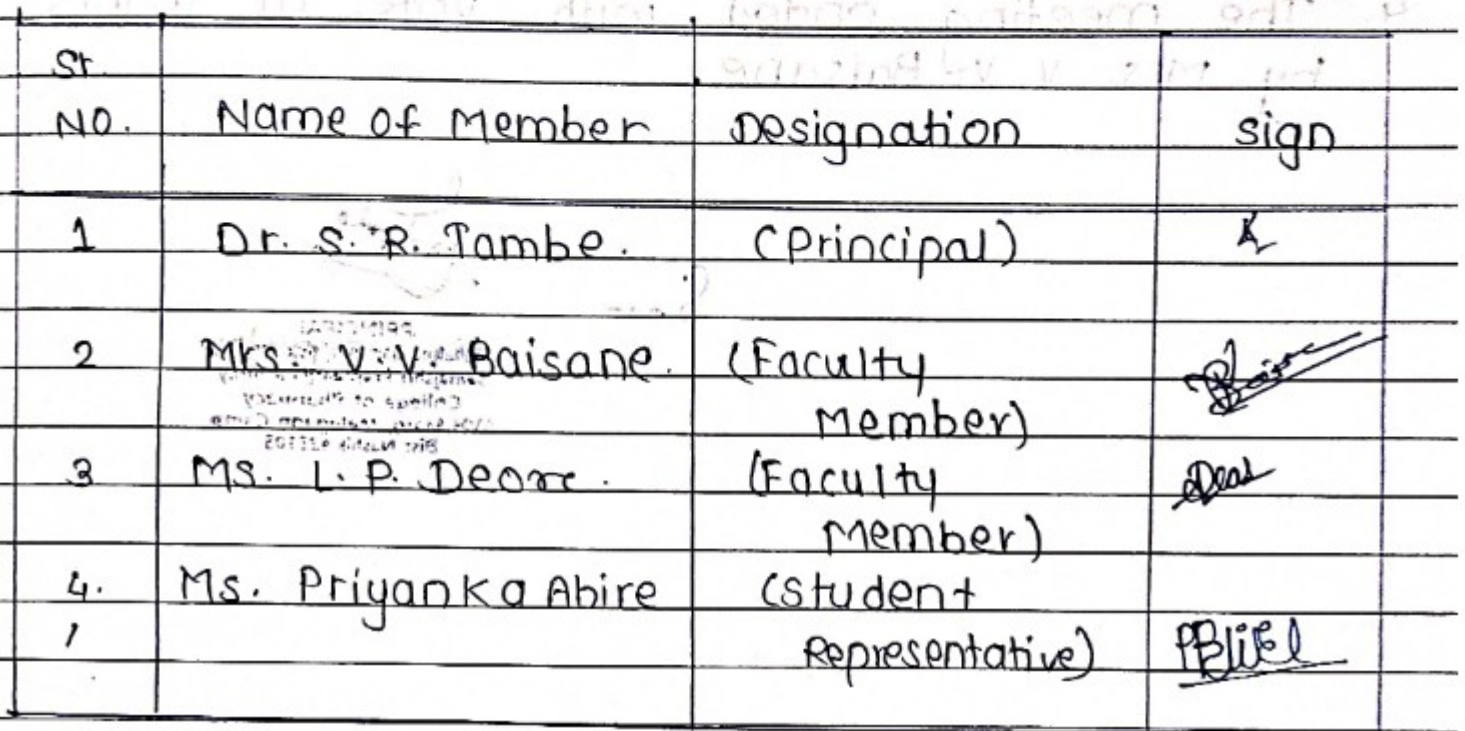 Sr.
NO. Name of Member Designation sign
1 Dr. S. R. Tambe. (Principal)
2 Mrs. V. V. Baisane. (Faculty
Member)
3 Ms. L. P. Deore. (Faculty
Member)
4. Ms. Priyanka Ahire (Student
Representative)